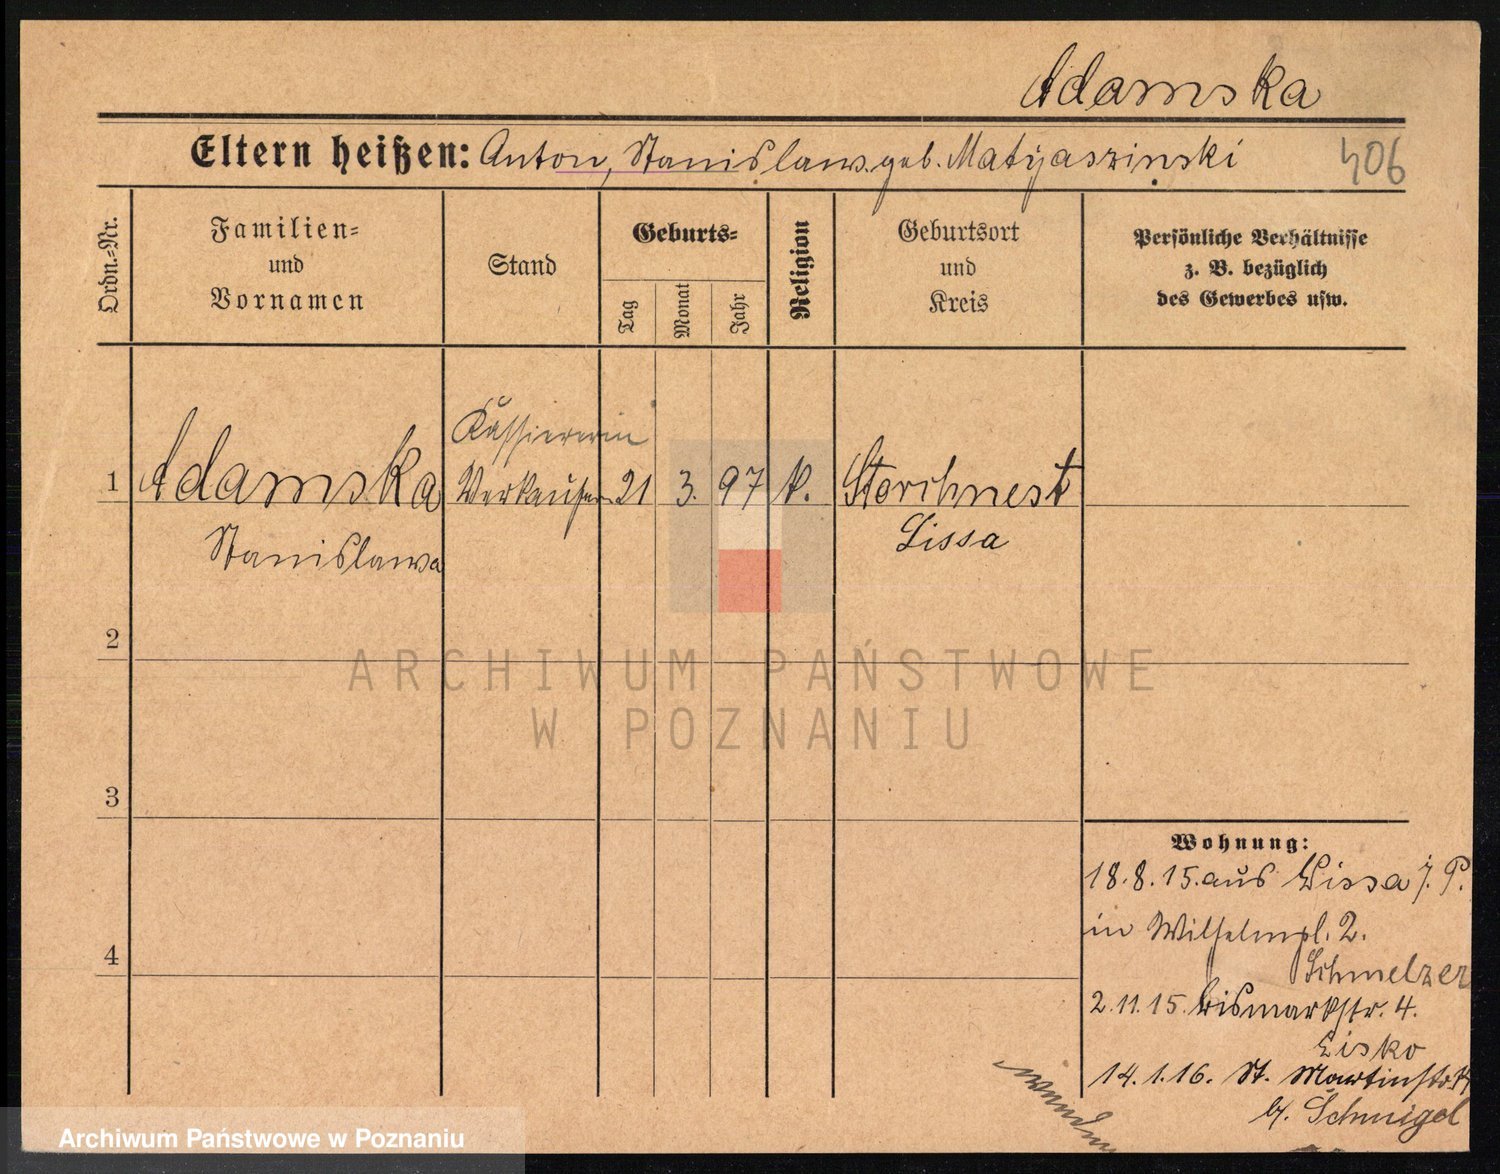 Adamska
Eltern heißen: Anton, Stanislawa geb. Matyaszinski 406
Ordn.-Nr.
Familien-
und
Vornamen
Stand
Geburts-
Tag
Monat
Jahr
Religion
Geburtsort
und
Kreis
Persönliche Verhältnisse
z. B. bezüglich
des Gewerbes usw.
Kassiererin
1 Adamska Verkäuferin 21 3. 97 k. Storchnest
Stanislawa Lissa
2
3
4
ARCHIWUM PAŃSTWOWE
W POZNANIU
Wohnung:
18.8.15. aus Lissa i. P.
in Wilhelmpl. 2.
Schmelzer
2.11.15. Bismarkstr. 4.
Lisko
14.1.16. St. Martinstr.
b/. Schmigel
wenden
Archiwum Państwowe w Poznaniu